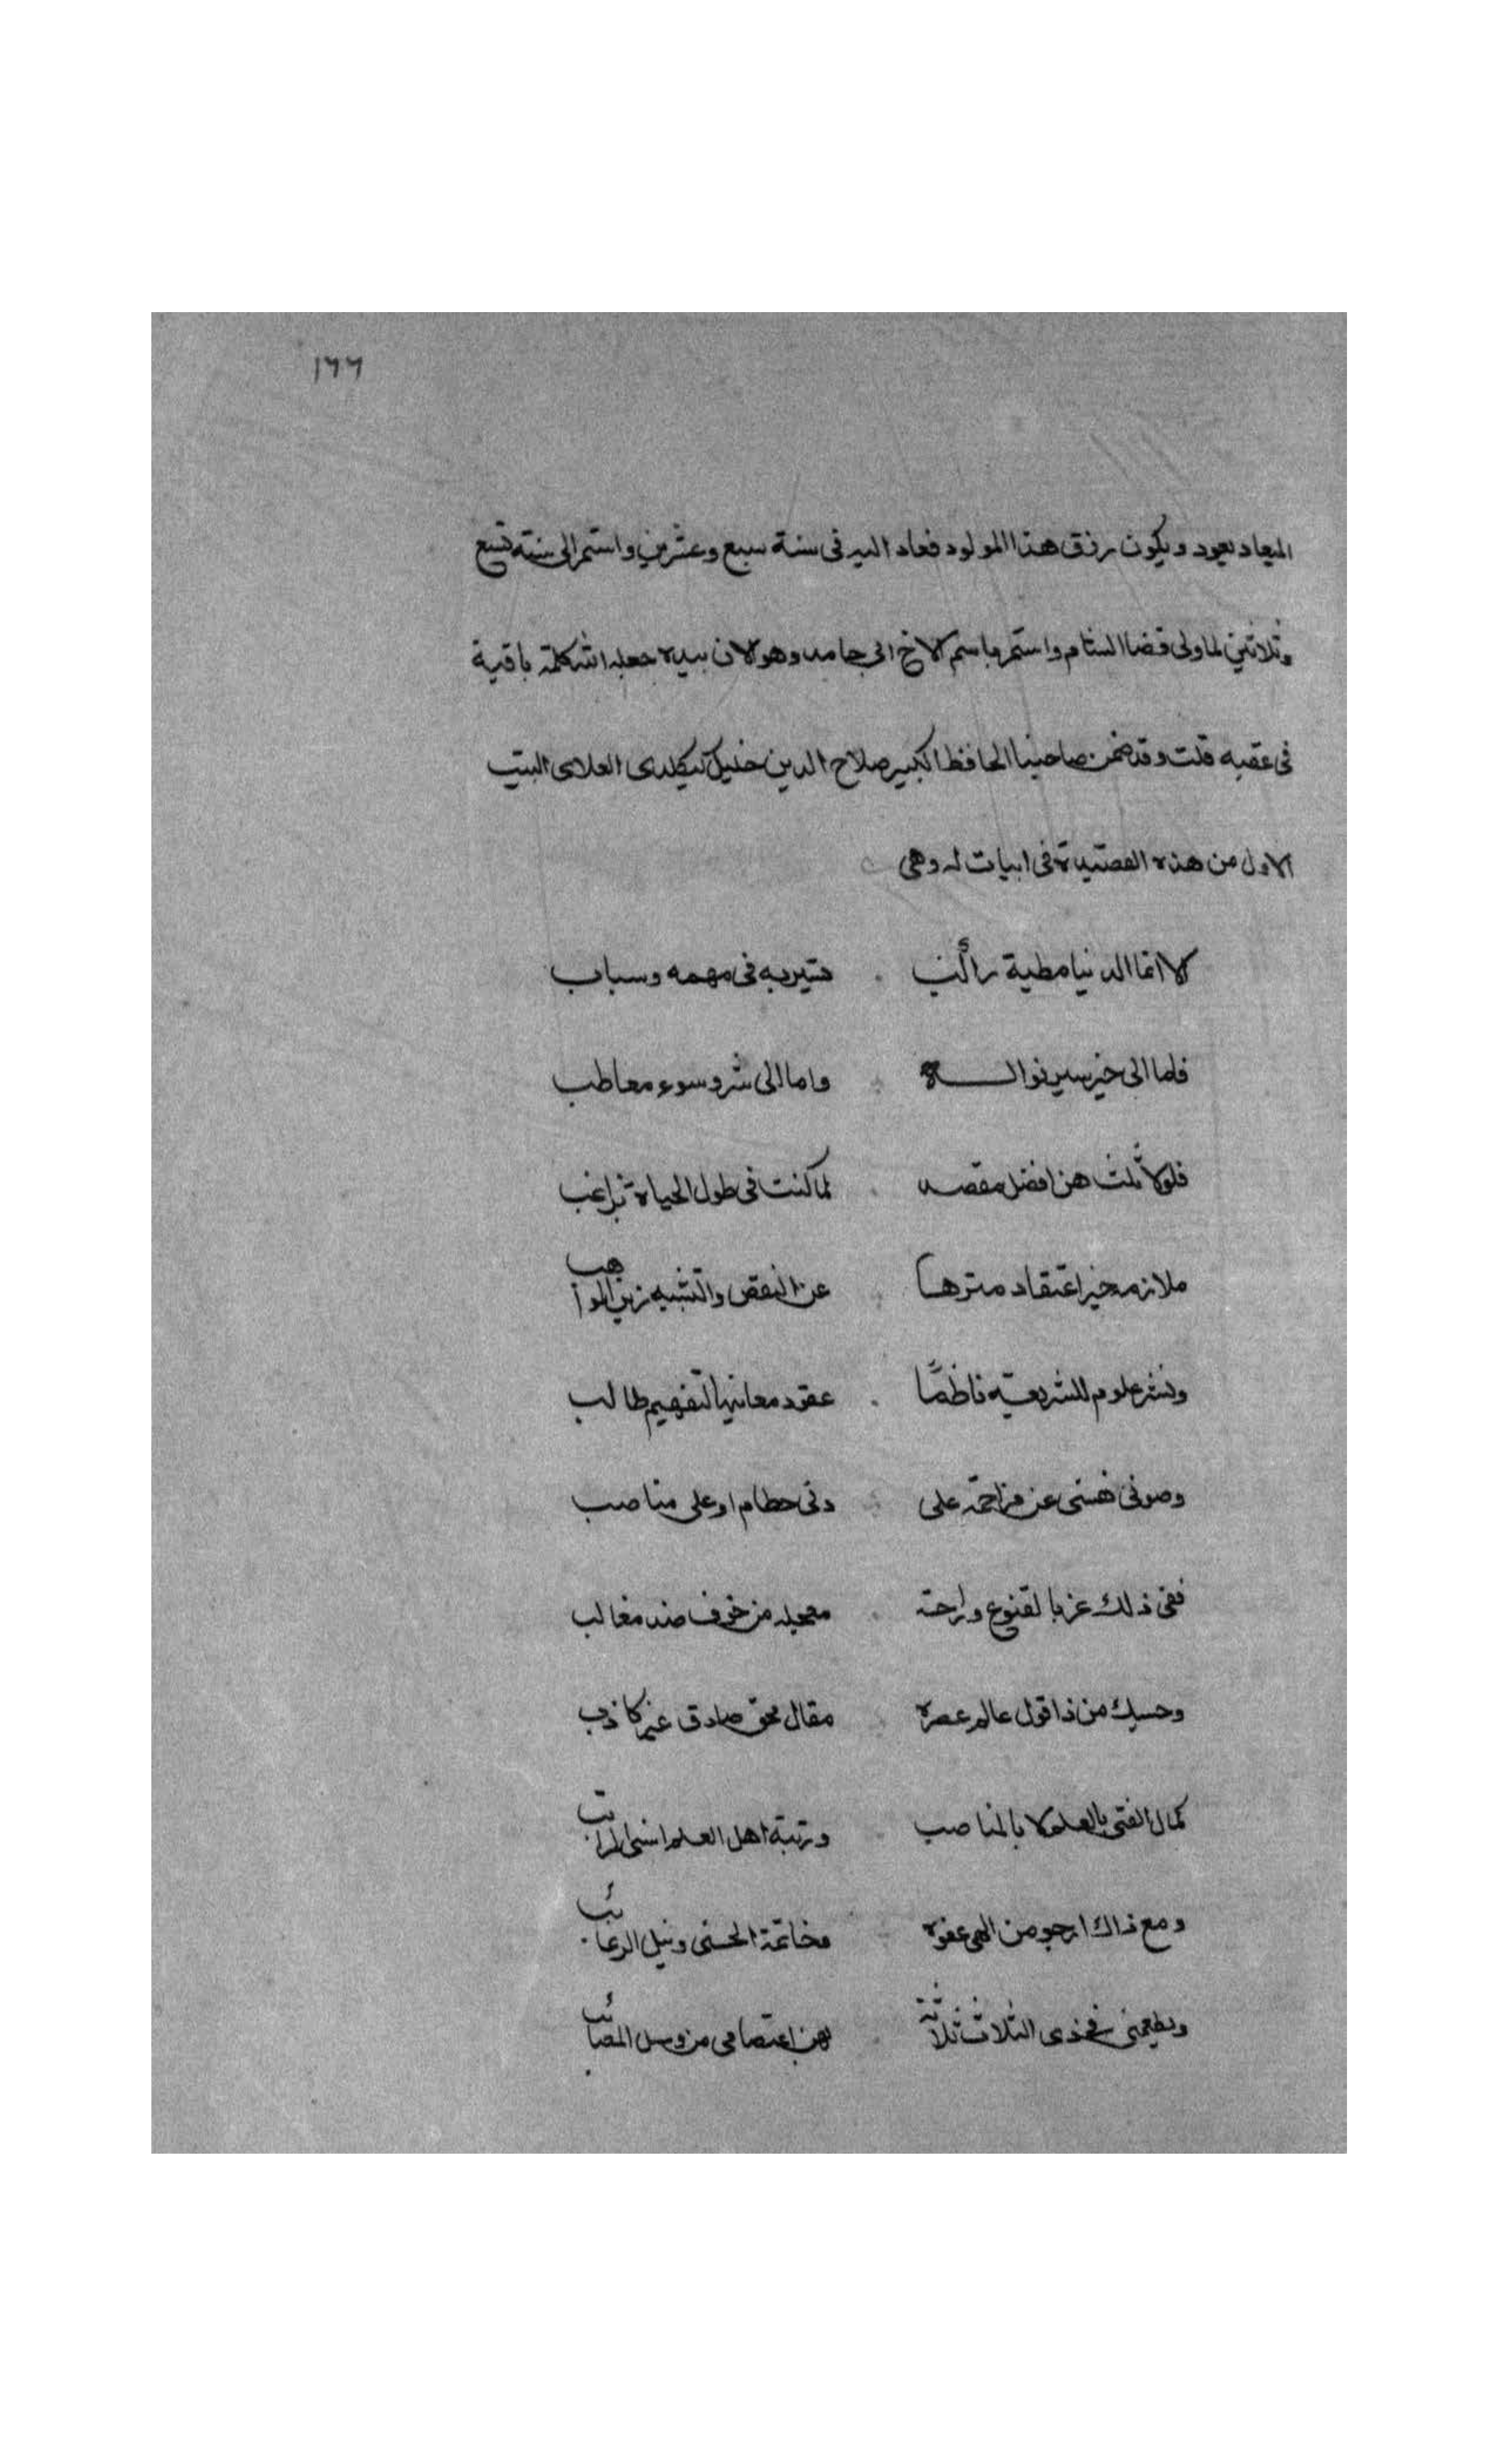 ١٦٦
الميعاد يعود ويكون رزق هذا المولود فعاد اليه فى سنة سبع وعشرين واستمر الى سنة تسع
وثلاثين لما ولى قضا الشام واستمر باسم الاخ ابى حامد وهو الان بيده جعله الله كلمة باقية
فى عقبه قلت وقد ضمن صاحبنا الحافظ الكبير صلاح الدين خليل كيكلدى العلاى البيت
الاول من هذه القصيدة فى ابيات له وهى
الا انما الدنيا مطية راكب تسير به فى مهمه وسباب
فاما الى خير يسير نواله واما الى شر وسوء معاطب
فلولا ثلث هن افضل مقصد لما كنت فى طول الحياة براغب
ملازمة خير اعتقاد منزها عن النقص والتشبيه زين المواهب
ونشر علوم للشريعة ناظمًا عقود معانيها لتفهيم طالب
وصونى نفسى عن مزاحمة على دنى حطام او على مناصب
ففى ذلك عز بالقنوع وراحة معجله من خوف ضد مغالب
وحسبك من ذا قول عالم عصره مقال محق صادق غير كاذب
كمال الفتى بالعلم لا بالمناصب ورتبة اهل العلم اسنى المراتب
ومع ذاك ارجو من الهى عفوه وخاتمة الحسنى ونيل الرغائب
ويطعمنى فى ذى الثلاث ثلاثة بهن اعتصامى من المصائب